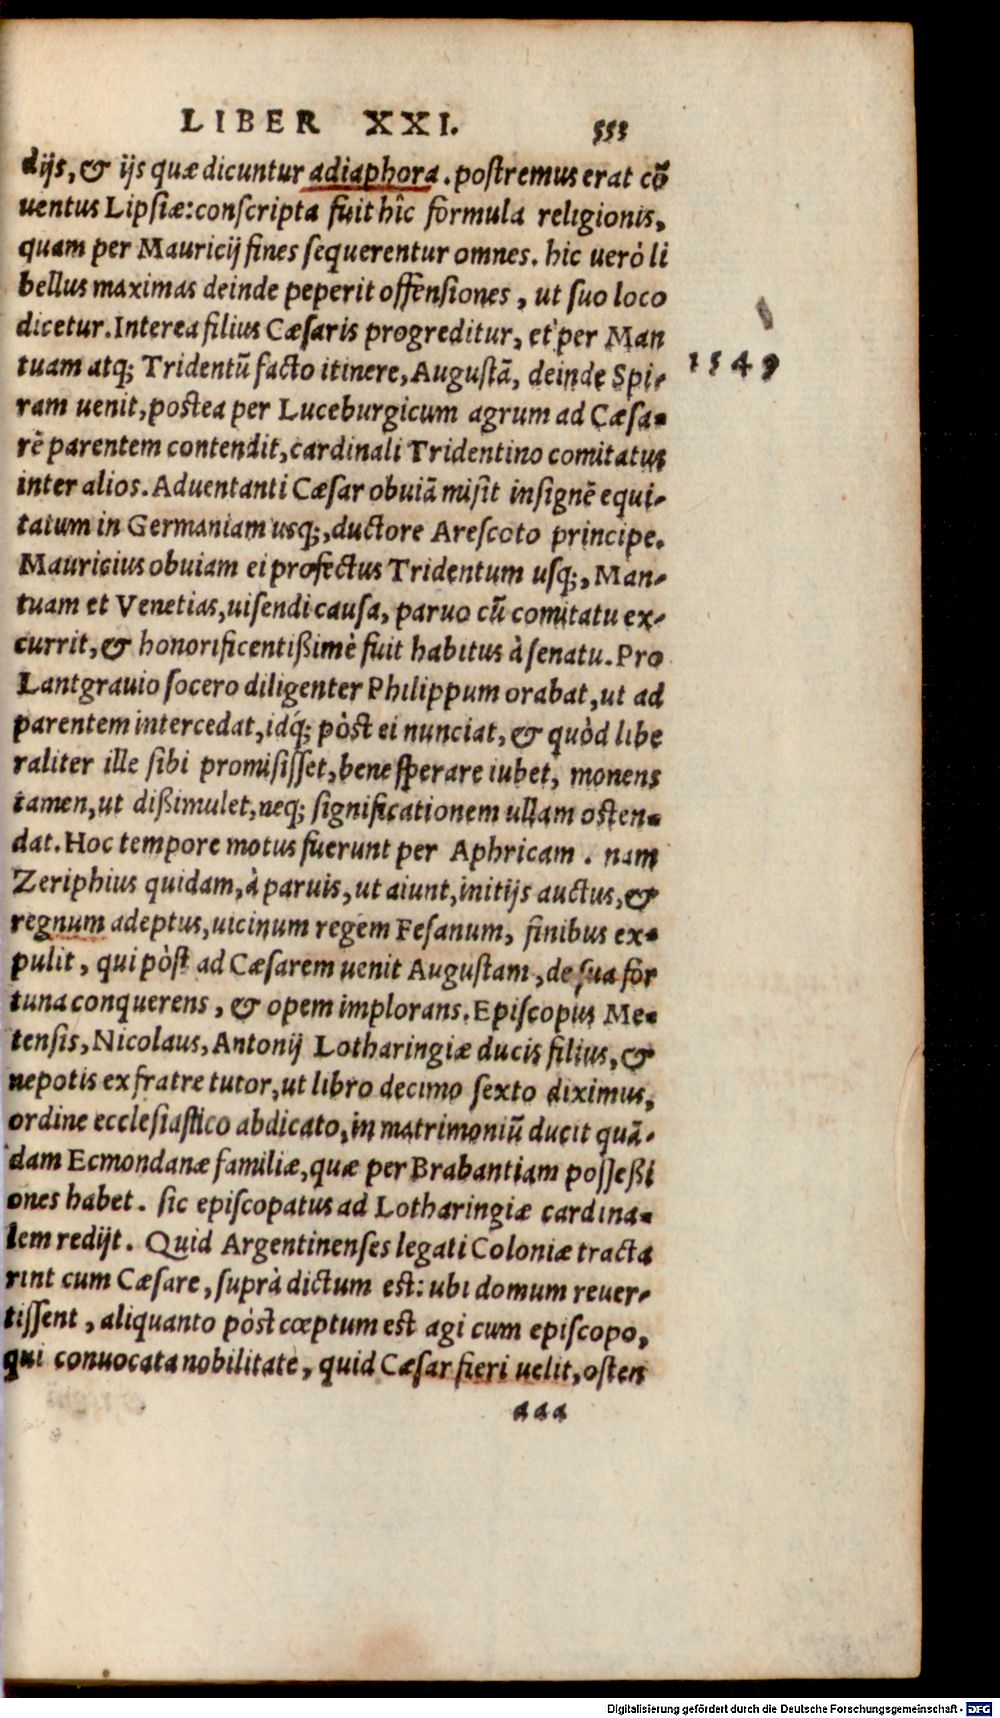 LIBER XXI. 553
dijs, & ijs quæ dicuntur adiaphora. postremus erat cõ
uentus Lipsiæ: conscripta fuit hîc formula religionis,
quam per Mauricij fines sequerentur omnes. hic uerò li
bellus maximas deinde peperit offensiones, ut suo loco
dicetur. Interea filius Cæsaris progreditur, et per Man
tuam atq; Tridentũ facto itinere, Augustã, deinde Spi-
1549
ram uenit, postea per Luceburgicum agrum ad Cæsa-
rẽ parentem contendit, cardinali Tridentino comitatus
inter alios. Aduentanti Cæsar obuiã misit insignẽ equi-
tatum in Germaniam usq;, ductore Arescoto principe.
Mauricius obuiam ei profectus Tridentum usq;, Man-
tuam et Venetias, uisendi causa, paruo cũ comitatu ex-
currit, & honorificentißimè fuit habitus à senatu. Pro
Lantgrauio socero diligenter Philippum orabat, ut ad
parentem intercedat, idq́; pòst ei nunciat, & quòd libe
raliter ille sibi promisisset, bene sperare iubet, monens
tamen, ut dißimulet, neq; significationem ullam osten-
dat. Hoc tempore motus fuerunt per Aphricam. nam
Zeriphius quidam, à paruis, ut aiunt, initijs auctus, &
regnum adeptus, uicinum regem Fesanum, finibus ex-
pulit, qui pòst ad Cæsarem uenit Augustam, de sua for
tuna conquerens, & opem implorans. Episcopus Me-
tensis, Nicolaus, Antonij Lotharingiæ ducis filius, &
nepotis ex fratre tutor, ut libro decimo sexto diximus,
ordine ecclesiastico abdicato, in matrimoniũ ducit quã-
dam Ecmondanæ familiæ, quæ per Brabantiam posseßi
ones habet. sic episcopatus ad Lotharingiæ cardina-
lem redijt. Quid Argentinenses legati Coloniæ tracta
rint cum Cæsare, suprà dictum est: ubi domum reuer-
tissent, aliquanto pòst cœptum est agi cum episcopo,
qui conuocata nobilitate, quid Cæsar fieri uelit, osten
aaa
Digitalisierung gefördert durch die Deutsche Forschungsgemeinschaft - DFG